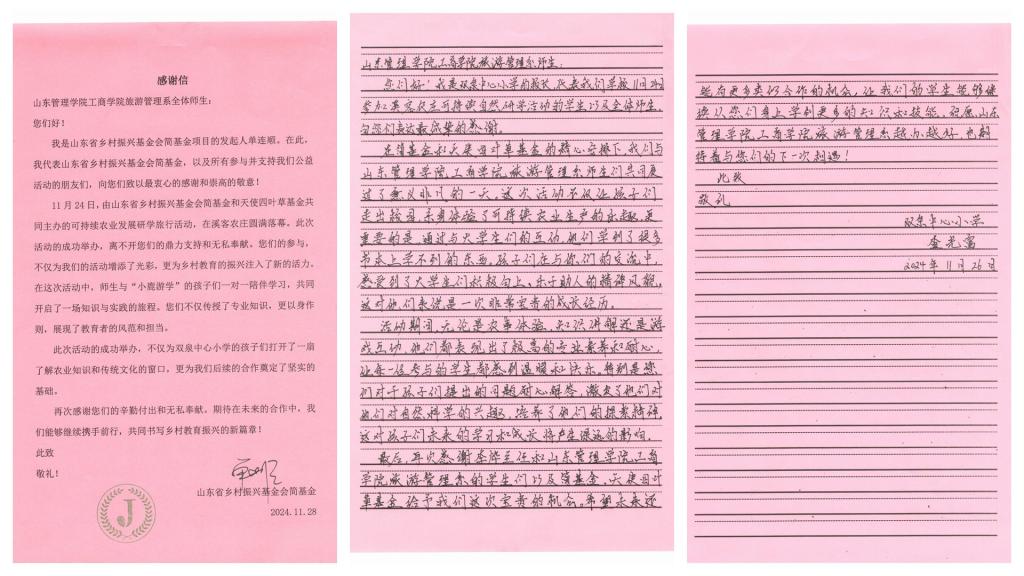 感谢信
山东管理学院工商学院旅游管理系全体师生：
您们好！
我是山东省乡村振兴基金会简基金项目的发起人单连顺。在此，
我代表山东省乡村振兴基金会简基金，以及所有参与并支持我们公益
活动的朋友们，向您们致以最衷心的感谢和崇高的敬意！
11月24日，由山东省乡村振兴基金会简基金和天使四叶草基金共
同主办的可持续农业发展研学旅行活动，在溪客农庄圆满落幕。此次
活动的成功举办，离不开您们的鼎力支持和无私奉献。您们的参与，
不仅为我们的活动增添了光彩，更为乡村教育的振兴注入了新的活力。
在这次活动中，师生与“小鹿游学”的孩子们一对一陪伴学习，共同
开启了一场知识与实践的旅程。您们不仅传授了专业知识，更以身作
则，展现了教育者的风范和担当。
此次活动的成功举办，不仅为双泉中心小学的孩子们打开了一扇
了解农业知识和传统文化的窗口，更为我们后续的合作奠定了坚实的
基础。
再次感谢您们的辛勤付出和无私奉献。期待在未来的合作中，我
们能够继续携手前行，共同书写乡村教育振兴的新篇章！
此致
敬礼！
山东省乡村振兴基金会简基金
2024.11.28
J
山东管理学院工商学院旅游管理系师生：
您们好！我是双泉中心小学的校长，代表我们学校11月24日
参加溪客农庄可持续自然研学活动的学生以及全体师生，
向您们表达最诚挚的感谢。
在简基金和天使四叶草基金的精心安排下，我们与
山东管理学院工商学院旅游管理系师生们共同度
过了意义非凡的一天。这次活动不仅让孩子们
走出校园，亲身体验了可持续农业生产的乐趣，更
重要的是，通过与大学生们的互动，他们学到了很多
书本上学不到的东西。孩子们在与你们的交流中，
感受到了大学生们积极向上、乐于助人的精神风貌，
这对他们来说是一次非常宝贵的成长经历。
活动期间，无论是农事体验、知识讲解还是游
戏互动，他们都表现出了极高的专业素养和耐心，
让每一位参与的学生都感到温暖和快乐。特别是您
们对于孩子们提出的问题耐心解答，激发了他们对
他们对自然科学的兴趣，培养了他们的探索精神，
这对孩子们未来的学习和成长将产生深远的影响。
最后，再次感谢李 主任和山东管理学院工商
学院旅游管理系的学生们以及简基金、天使四叶
草基金给予我们这次宝贵的机会。希望未来还
能有更多类似合作的机会，让我们的学生能够继
续从您们身上学到更多的知识和技能。祝愿山东
管理学院工商学院旅游管理系越办越好，也期
待着与您们的下一次相遇！
此致
敬礼
双泉中心小学
金光富
2024年11月26日